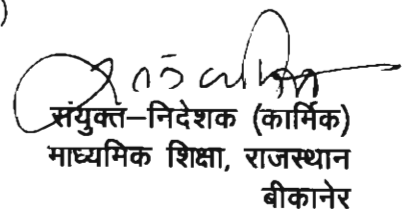 )
संयुक्त–निदेशक (कार्मिक)
माध्यमिक शिक्षा, राजस्थान
बीकानेर